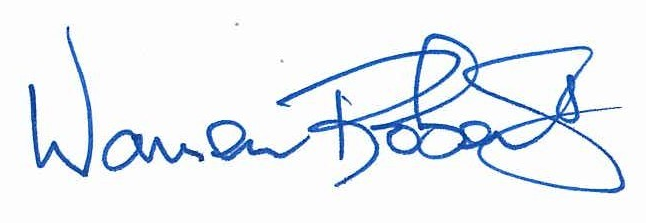 Warren Roberts